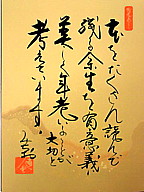 本をたくさん読んで
残る余生を有意義
美しく年老いることが
大切と
考えています。